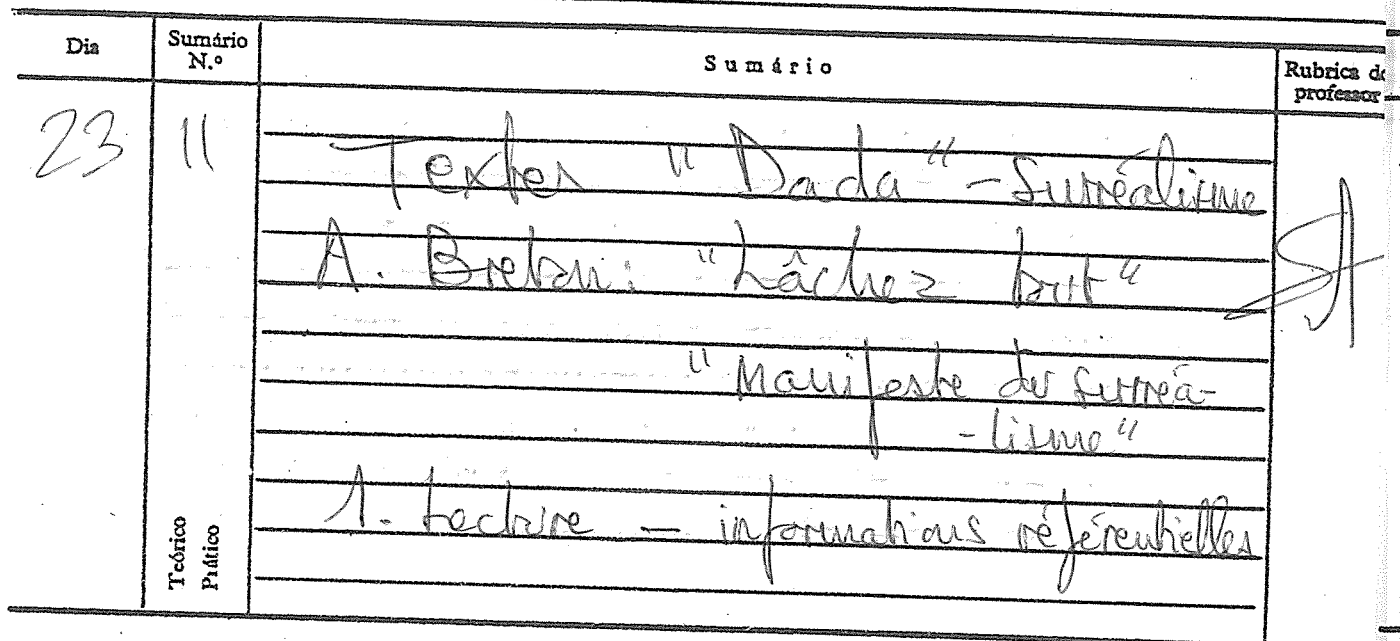 Dia Sumário N.º Sumário Rubrica do professor
23 11 Textes "Dada" - Surréalisme
A. Breton: "Lâchez tout"
"Manifeste du surréa-
-lisme"
1. Lecture — informations référentielles
Teórico
Prático